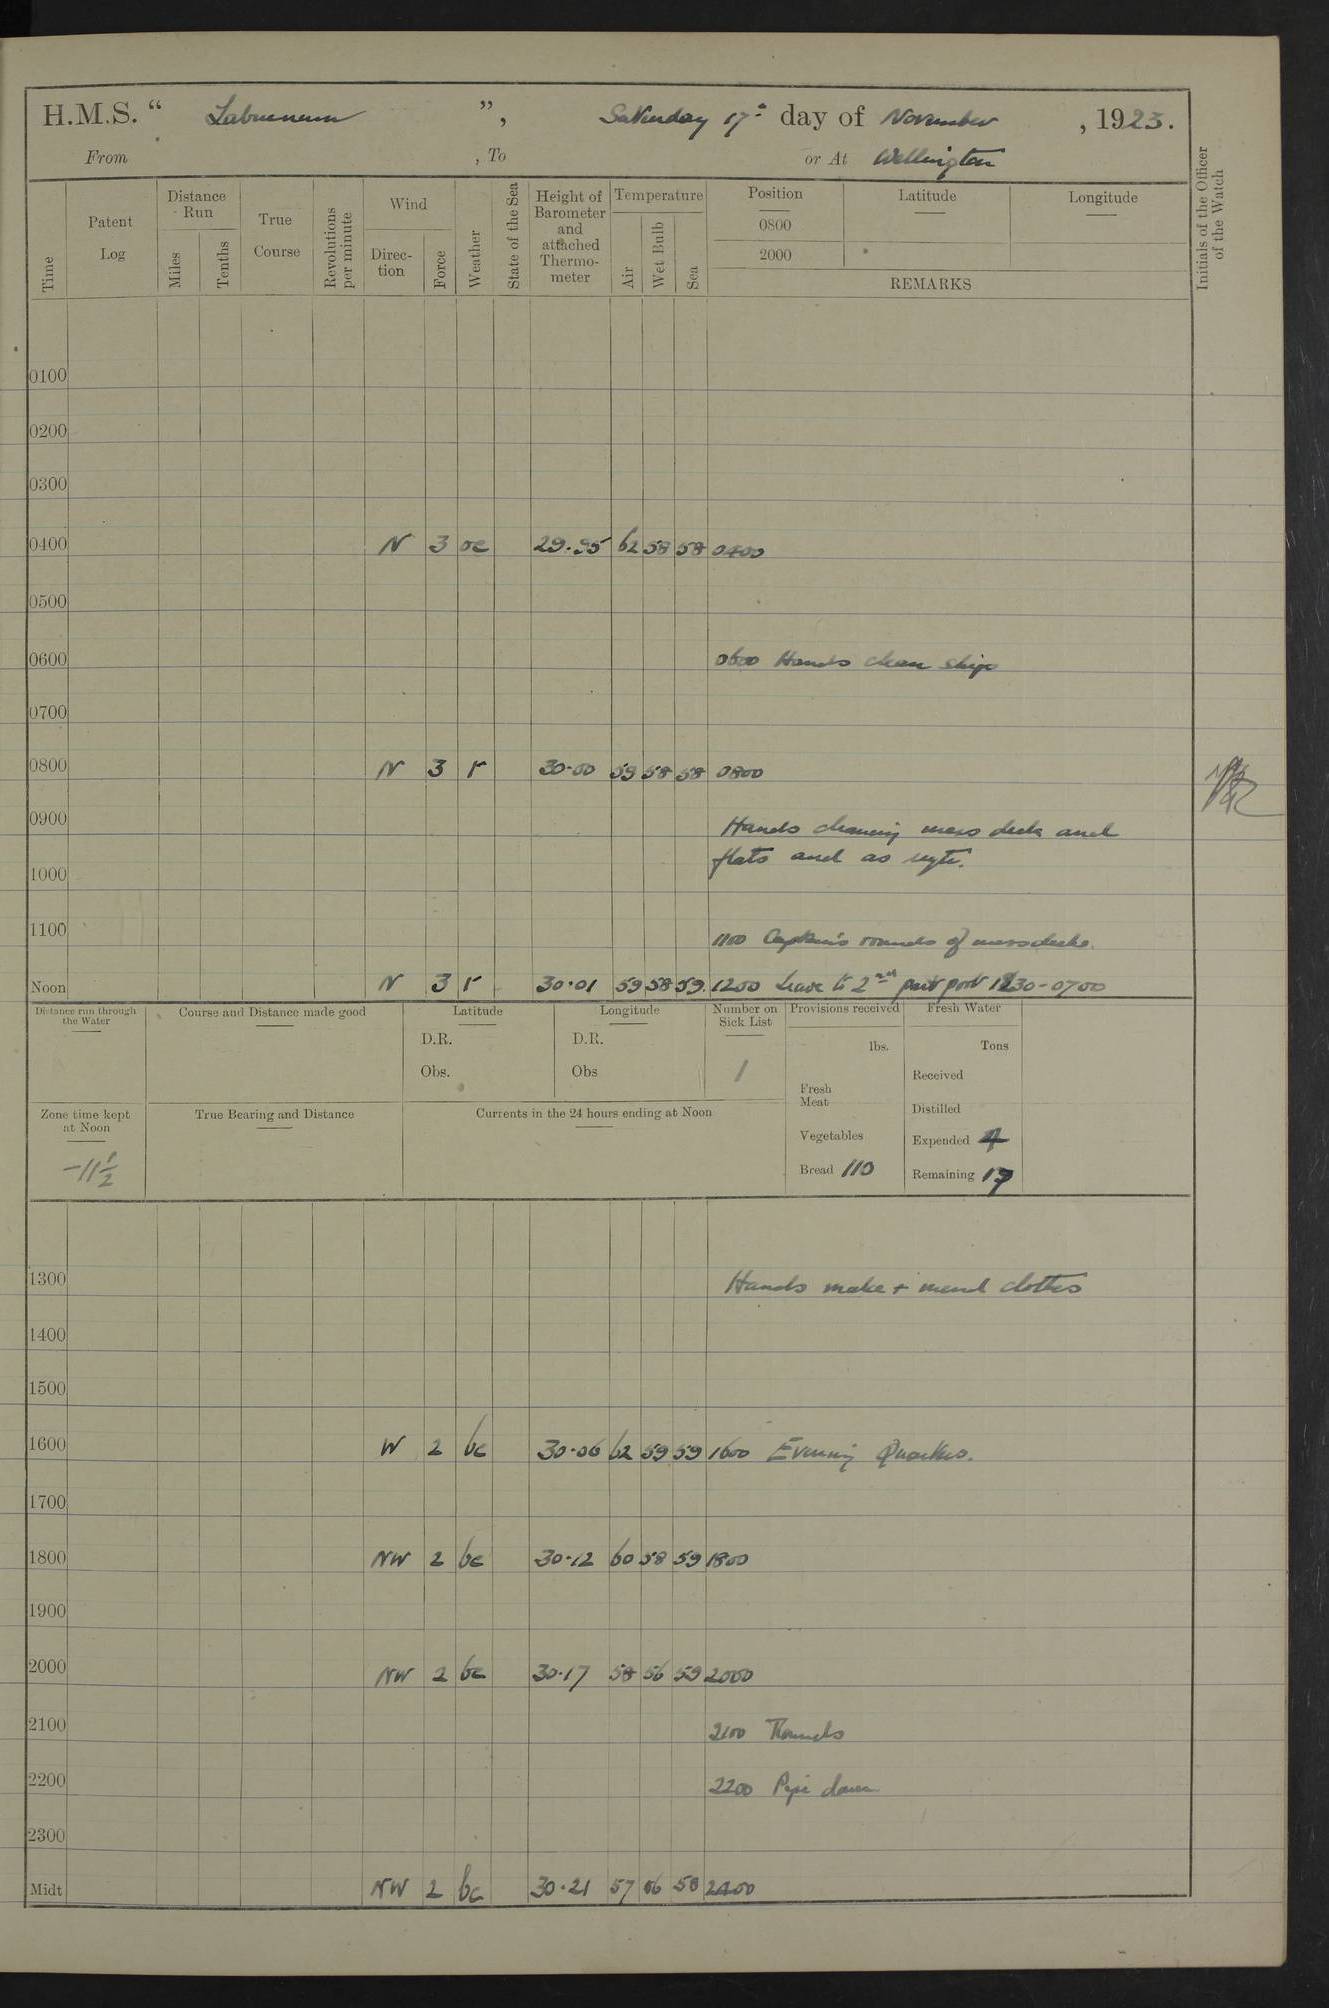 H.M.S. “ Laburnum ”, Saturday 17th day of November , 1923.
From , To or At Wellington
Time
Patent Log
Distance Run
Miles
Tenths
True Course
Revolutions per minute
Wind
Direction
Force
Weather
State of the Sea
Height of Barometer and attached Thermometer
Temperature
Air
Wet Bulb
Sea
Position
0800
2000
Latitude
Longitude
REMARKS
Initials of the Officer of the Watch
0100
0200
0300
0400 N 3 oc 29.95 62 58 58 0400
0500
0600 0600 Hands clean ship
0700
0800 N 3 r 30.00 59 58 58 0800
0900 Hands cleaning mess deck and
flats and as reqte.
1000
1100 1100 Captain's rounds of messdecks.
Noon N 3 r 30.01 59 58 59. 1200 Leave to 2nd part port 1230-0700
Distance run through the Water
Course and Distance made good
Latitude
D.R.
Obs.
Longitude
D.R.
Obs
Number on Sick List
1
Provisions received
lbs.
Fresh Meat
Vegetables
Bread 110
Fresh Water
Tons
Received
Distilled
Expended 4
Remaining 17
Zone time kept at Noon
-11 1/2
True Bearing and Distance
Currents in the 24 hours ending at Noon
1300 Hands make + mend clothes
1400
1500
1600 W 2 bc 30.06 62 59 59 1600 Evening Quarters.
1700
1800 NW 2 bc 30.12 60 58 59 1800
1900
2000 NW 2 bc 30.17 58 56 59 2000
2100 2100 Rounds
2200 2200 Pipe down
2300
Midt NW 2 bc 30.21 57 56 58 2400